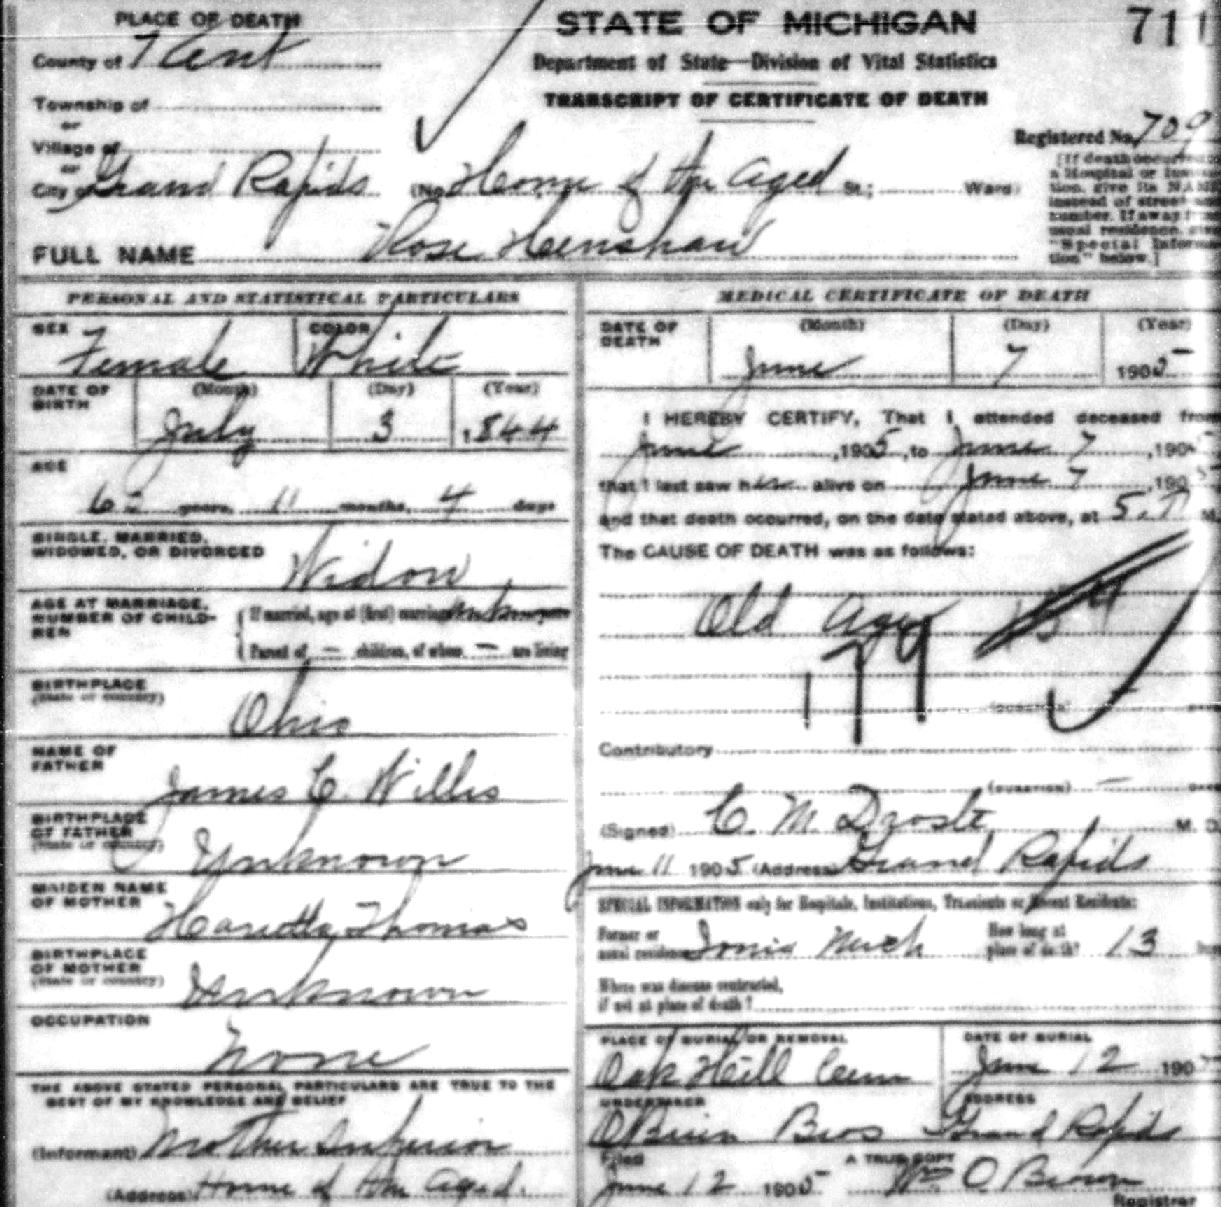 PLACE OF DEATH
County of Kent
Township of
or
Village of
or
City of Grand Rapids (No. Home of the Aged St.; Ward)
STATE OF MICHIGAN
Department of State—Division of Vital Statistics
TRANSCRIPT OF CERTIFICATE OF DEATH
711
Registered No. 709
[If death occurred
a Hospital or Insti
tion, give its NAME
instead of street an
number. If away from
usual residence, give
"Special Informa
tion" below.]
FULL NAME Rose Henshaw
PERSONAL AND STATISTICAL PARTICULARS
SEX Female COLOR White
DATE OF BIRTH (Month) July (Day) 3 (Year) 1844
AGE
years, 11 months, 4 days
SINGLE, MARRIED,
WIDOWED, OR DIVORCED Widow
AGE AT MARRIAGE,
NUMBER OF CHILD-
REN
If married, age at (first) marriage unknown
Parent of — children, of whom — are living
BIRTHPLACE
(State or country) Ohio
NAME OF
FATHER James C. Willis
BIRTHPLACE
OF FATHER
(State or country) Unknown
MAIDEN NAME
OF MOTHER Harietta Thomas
BIRTHPLACE
OF MOTHER
(State or country) Unknown
OCCUPATION
None
THE ABOVE STATED PERSONAL PARTICULARS ARE TRUE TO THE
BEST OF MY KNOWLEDGE AND BELIEF
(Informant) Mother Superior
(Address) Home of the Aged.
MEDICAL CERTIFICATE OF DEATH
DATE OF
DEATH (Month) June (Day) 7 (Year) 1905
I HEREBY CERTIFY, That I attended deceased from
June , 1905, to June 7 , 1905
that I last saw her alive on June 7 1905
and that death occurred, on the date stated above, at 5. P M.
The CAUSE OF DEATH was as follows:
Old Age 154
179
(DURATION)
Contributory
(DURATION) —
(Signed) C. M. Droste M. D.
June 11 1905 (Address) Grand Rapids
SPECIAL INFORMATION only for Hospitals, Institutions, Transients or Recent Residents:
Former or
usual residence Ionia Mich How long at
place of death? 13
Where was disease contracted,
if not at place of death?
PLACE OF BURIAL OR REMOVAL
Oak Hill Cem
DATE OF BURIAL
June 12 1905
UNDERTAKER
O'Brien Bros
ADDRESS
Grand Rapids
Filed
June 12 1905
A TRUE COPY
Wm O. Brown
Registrar